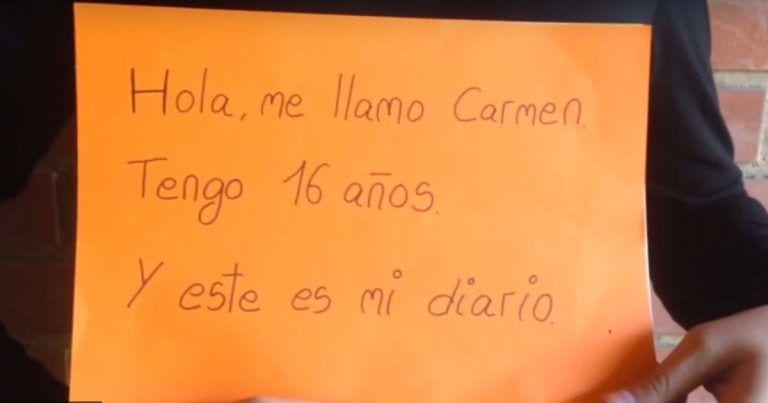 Hola, me llamo Carmen.
Tengo 16 años.
Y este es mi diario.